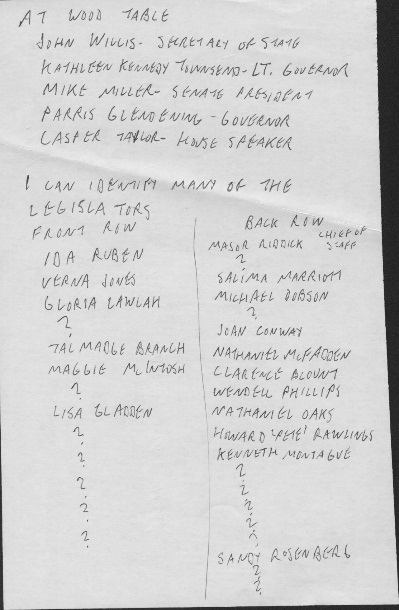 AT WOOD TABLE
JOHN WILLIS- SECRETARY OF STATE
KATHLEEN KENNEDY TOWNSEND- LT. GOVERNOR
MIKE MILLER- SENATE PRESIDENT
PARRIS GLENDENING - GOVERNOR
CASPER TAYLOR- HOUSE SPEAKER
I CAN IDENTIFY MANY OF THE
LEGISLATORS
FRONT ROW
IDA RUBEN
VERNA JONES
GLORIA LAWLAH
?
TALMADGE BRANCH
MAGGIE McINTOSH
?
LISA GLADDEN
?
?
?
?
?
BACK ROW
MAJOR RIDDICK CHIEF OF
STAFF
?
SALIMA MARRIOTT
MICHAEL DOBSON
?
JOAN CONWAY
NATHANIEL McFADDEN
CLARENCE BLOUNT
WENDELL PHILLIPS
NATHANIEL OAKS
HOWARD 'PETE' RAWLINGS
KENNETH MONTAGUE
?
?
?
?
?
SANDY ROSENBERG
?
?